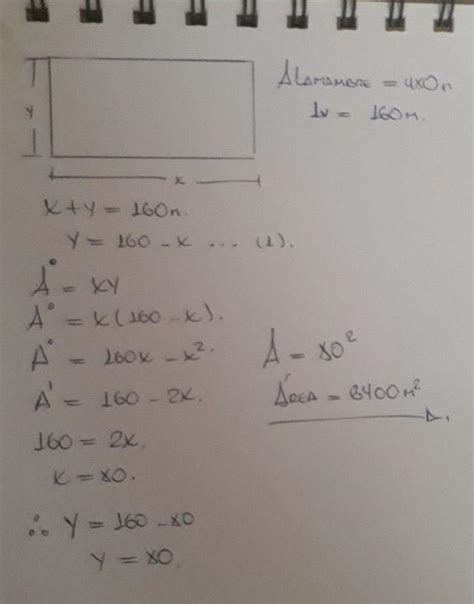 Alamambre = 480m
1v = 160m.
y
x
x + y = 160m.
y = 160 - x ... (1).
A° = xy
A° = x(160 - x).
A° = 160x - x².
A' = 160 - 2x.
160 = 2x.
x = 80.
∴ y = 160 - 80
y = 80.
A = 80²
Área = 6400m²